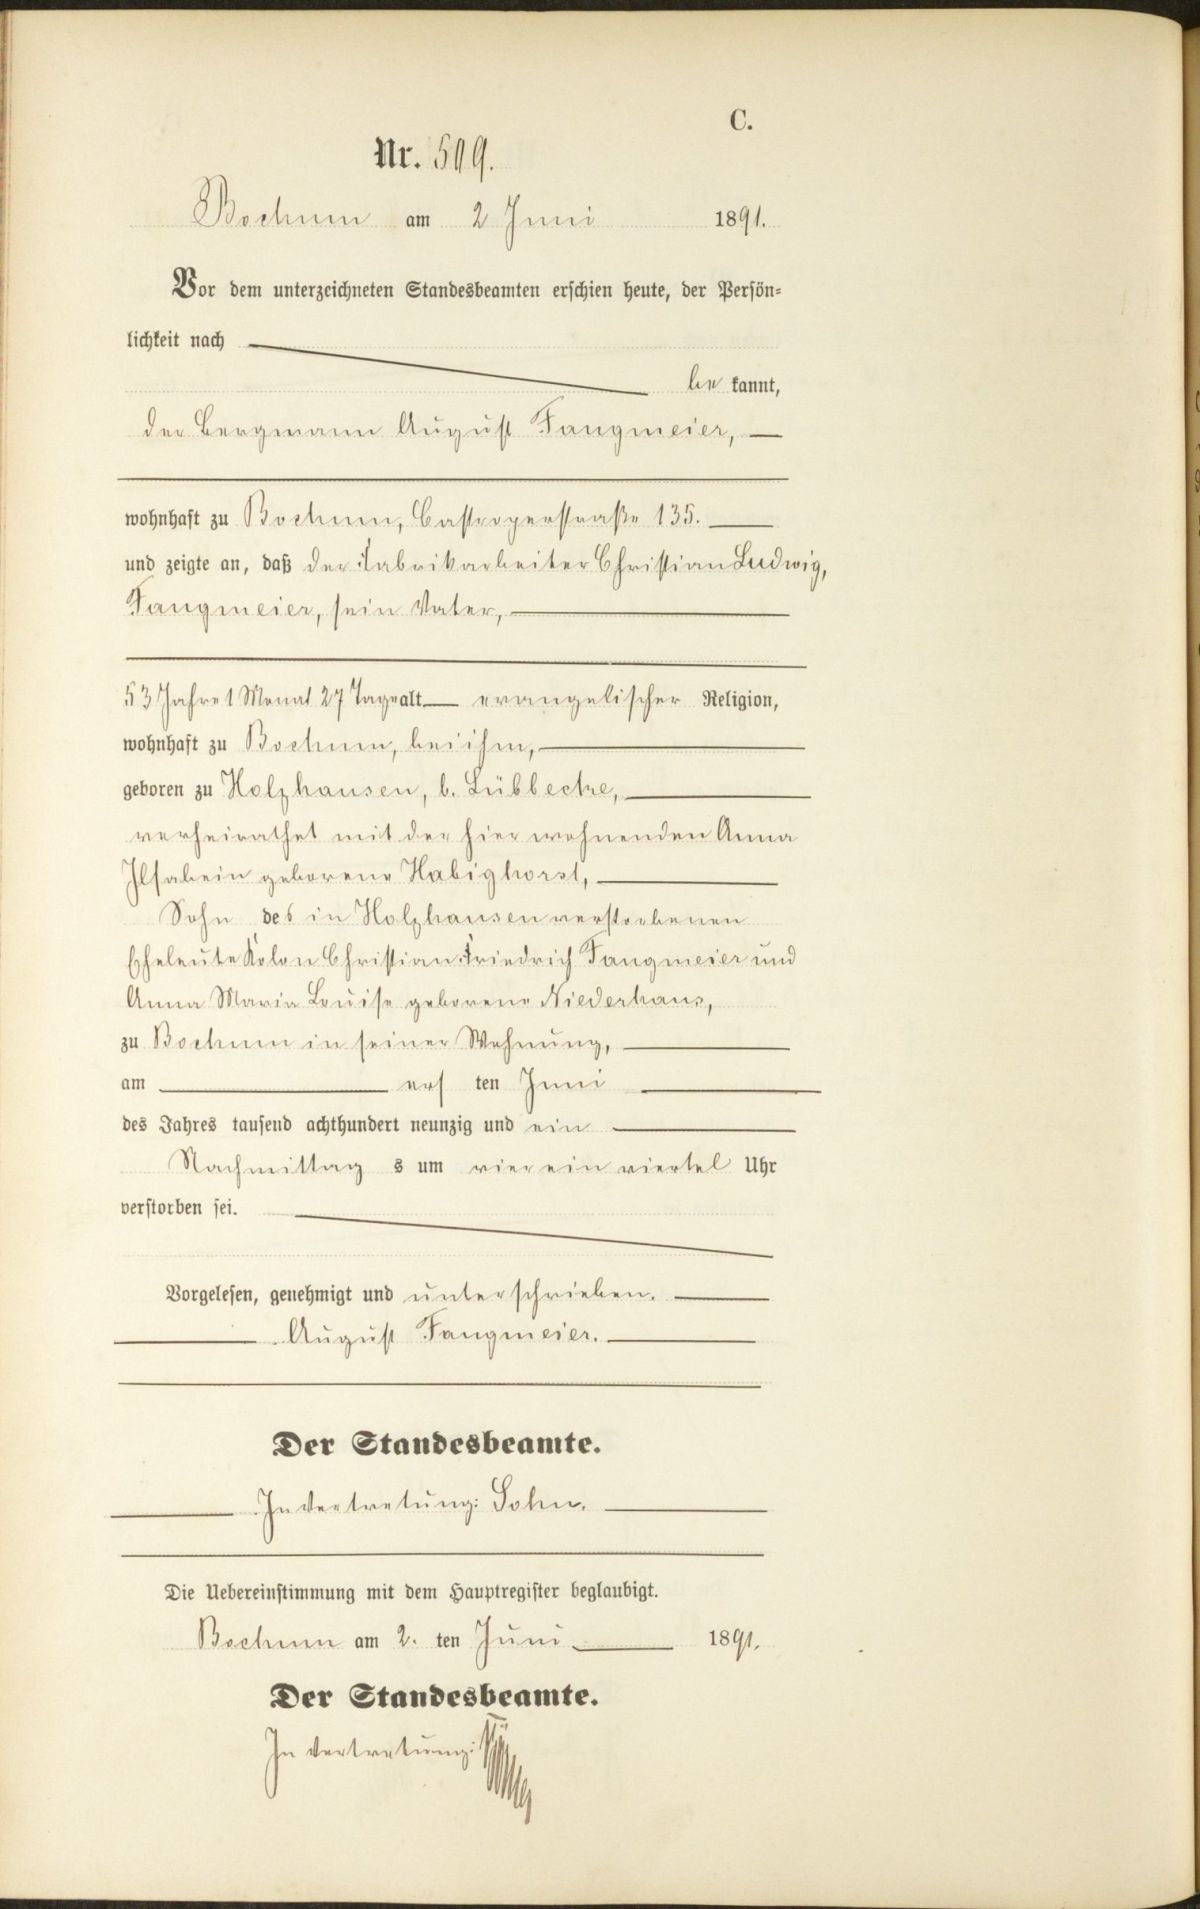 C.
Nr. 509.
Bochum am 2 Juni 1891.
Vor dem unterzeichneten Standesbeamten erschien heute, der Persön-
lichkeit nach
be kannt,
der Bergmann August Fangmeier,
wohnhaft zu Bochum, Castroperstraße 135.
und zeigte an, daß der Fabrikarbeiter Christian Ludwig,
Fangmeier, sein Vater,
53 Jahre 1 Monat 27 Tage alt evangelischer Religion,
wohnhaft zu Bochum, bei ihm,
geboren zu Holzhausen, b. Lübbecke,
verheirathet mit der hier wohnenden Anna
Ilsabein geborene Habighorst,
Sohn des in Holzhausen verstorbenen
Eheleute Kolon Christian Friedrich Fangmeier und
Anna Maria Louise geborene Niederhaus,
zu Bochum in seiner Wohnung,
am ers ten Juni
des Jahres tausend achthundert neunzig und ein
Nachmittag s um vier ein viertel Uhr
verstorben sei.
Vorgelesen, genehmigt und unterschrieben.
August Fangmeier.
Der Standesbeamte.
In Vertretung: Sohn.
Die Uebereinstimmung mit dem Hauptregister beglaubigt.
Bochum am 2. ten Juni 1891.
Der Standesbeamte.
In Vertretung: